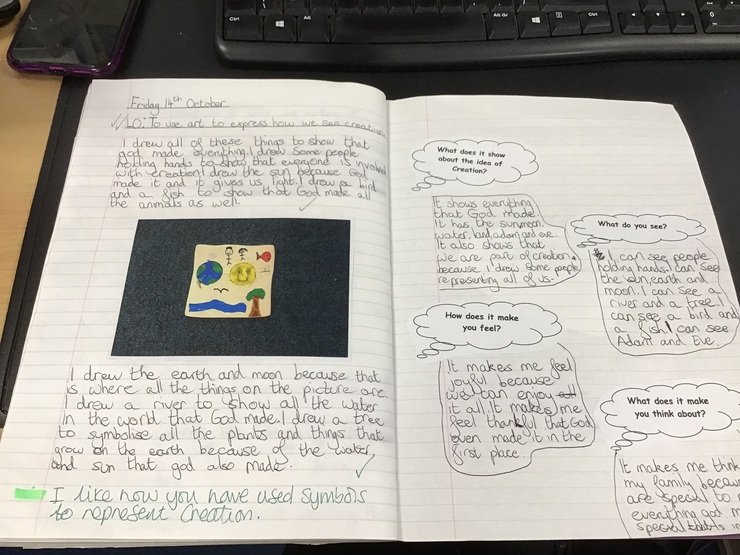 Friday 14th October
LO: To use art to express how we see creation
I drew all of these things to show that
god made everything. I drew some people
holding hands to show that everyone is involved
with creation. I drew the sun because God
made it and it gives us light. I drew a bird
and a fish to show that God made all
the animals as well.
I drew the earth and moon because that
is where all the things on the picture are.
I drew a river to show all the water
in the world that God made. I drew a tree
to symbolise all the plants and things that
grow on the earth because of the water
and sun that god also made.
I like how you have used symbols
to represent Creation.
What does it show
about the idea of
Creation?
It shows everything
that God made.
It has the sun, moon
water, land, adam and eve.
It also shows that
we are part of creation
because I drew some people
representing all of us.
What do you see?
I can see people
holding hands. I can see
the sun, earth and
moon. I can see a
river and a tree. I
can see a bird and
a fish. I can see
Adam and Eve.
How does it make
you feel?
It makes me feel
joyful because
we can enjoy all
it all. It makes me
feel thankful that God
even made it in the
first place.
What does it make
you think about?
It makes me think
my family becau
are special to
everything god m
special
Ctrl
Alt
Alt Gr
Ctrl
0